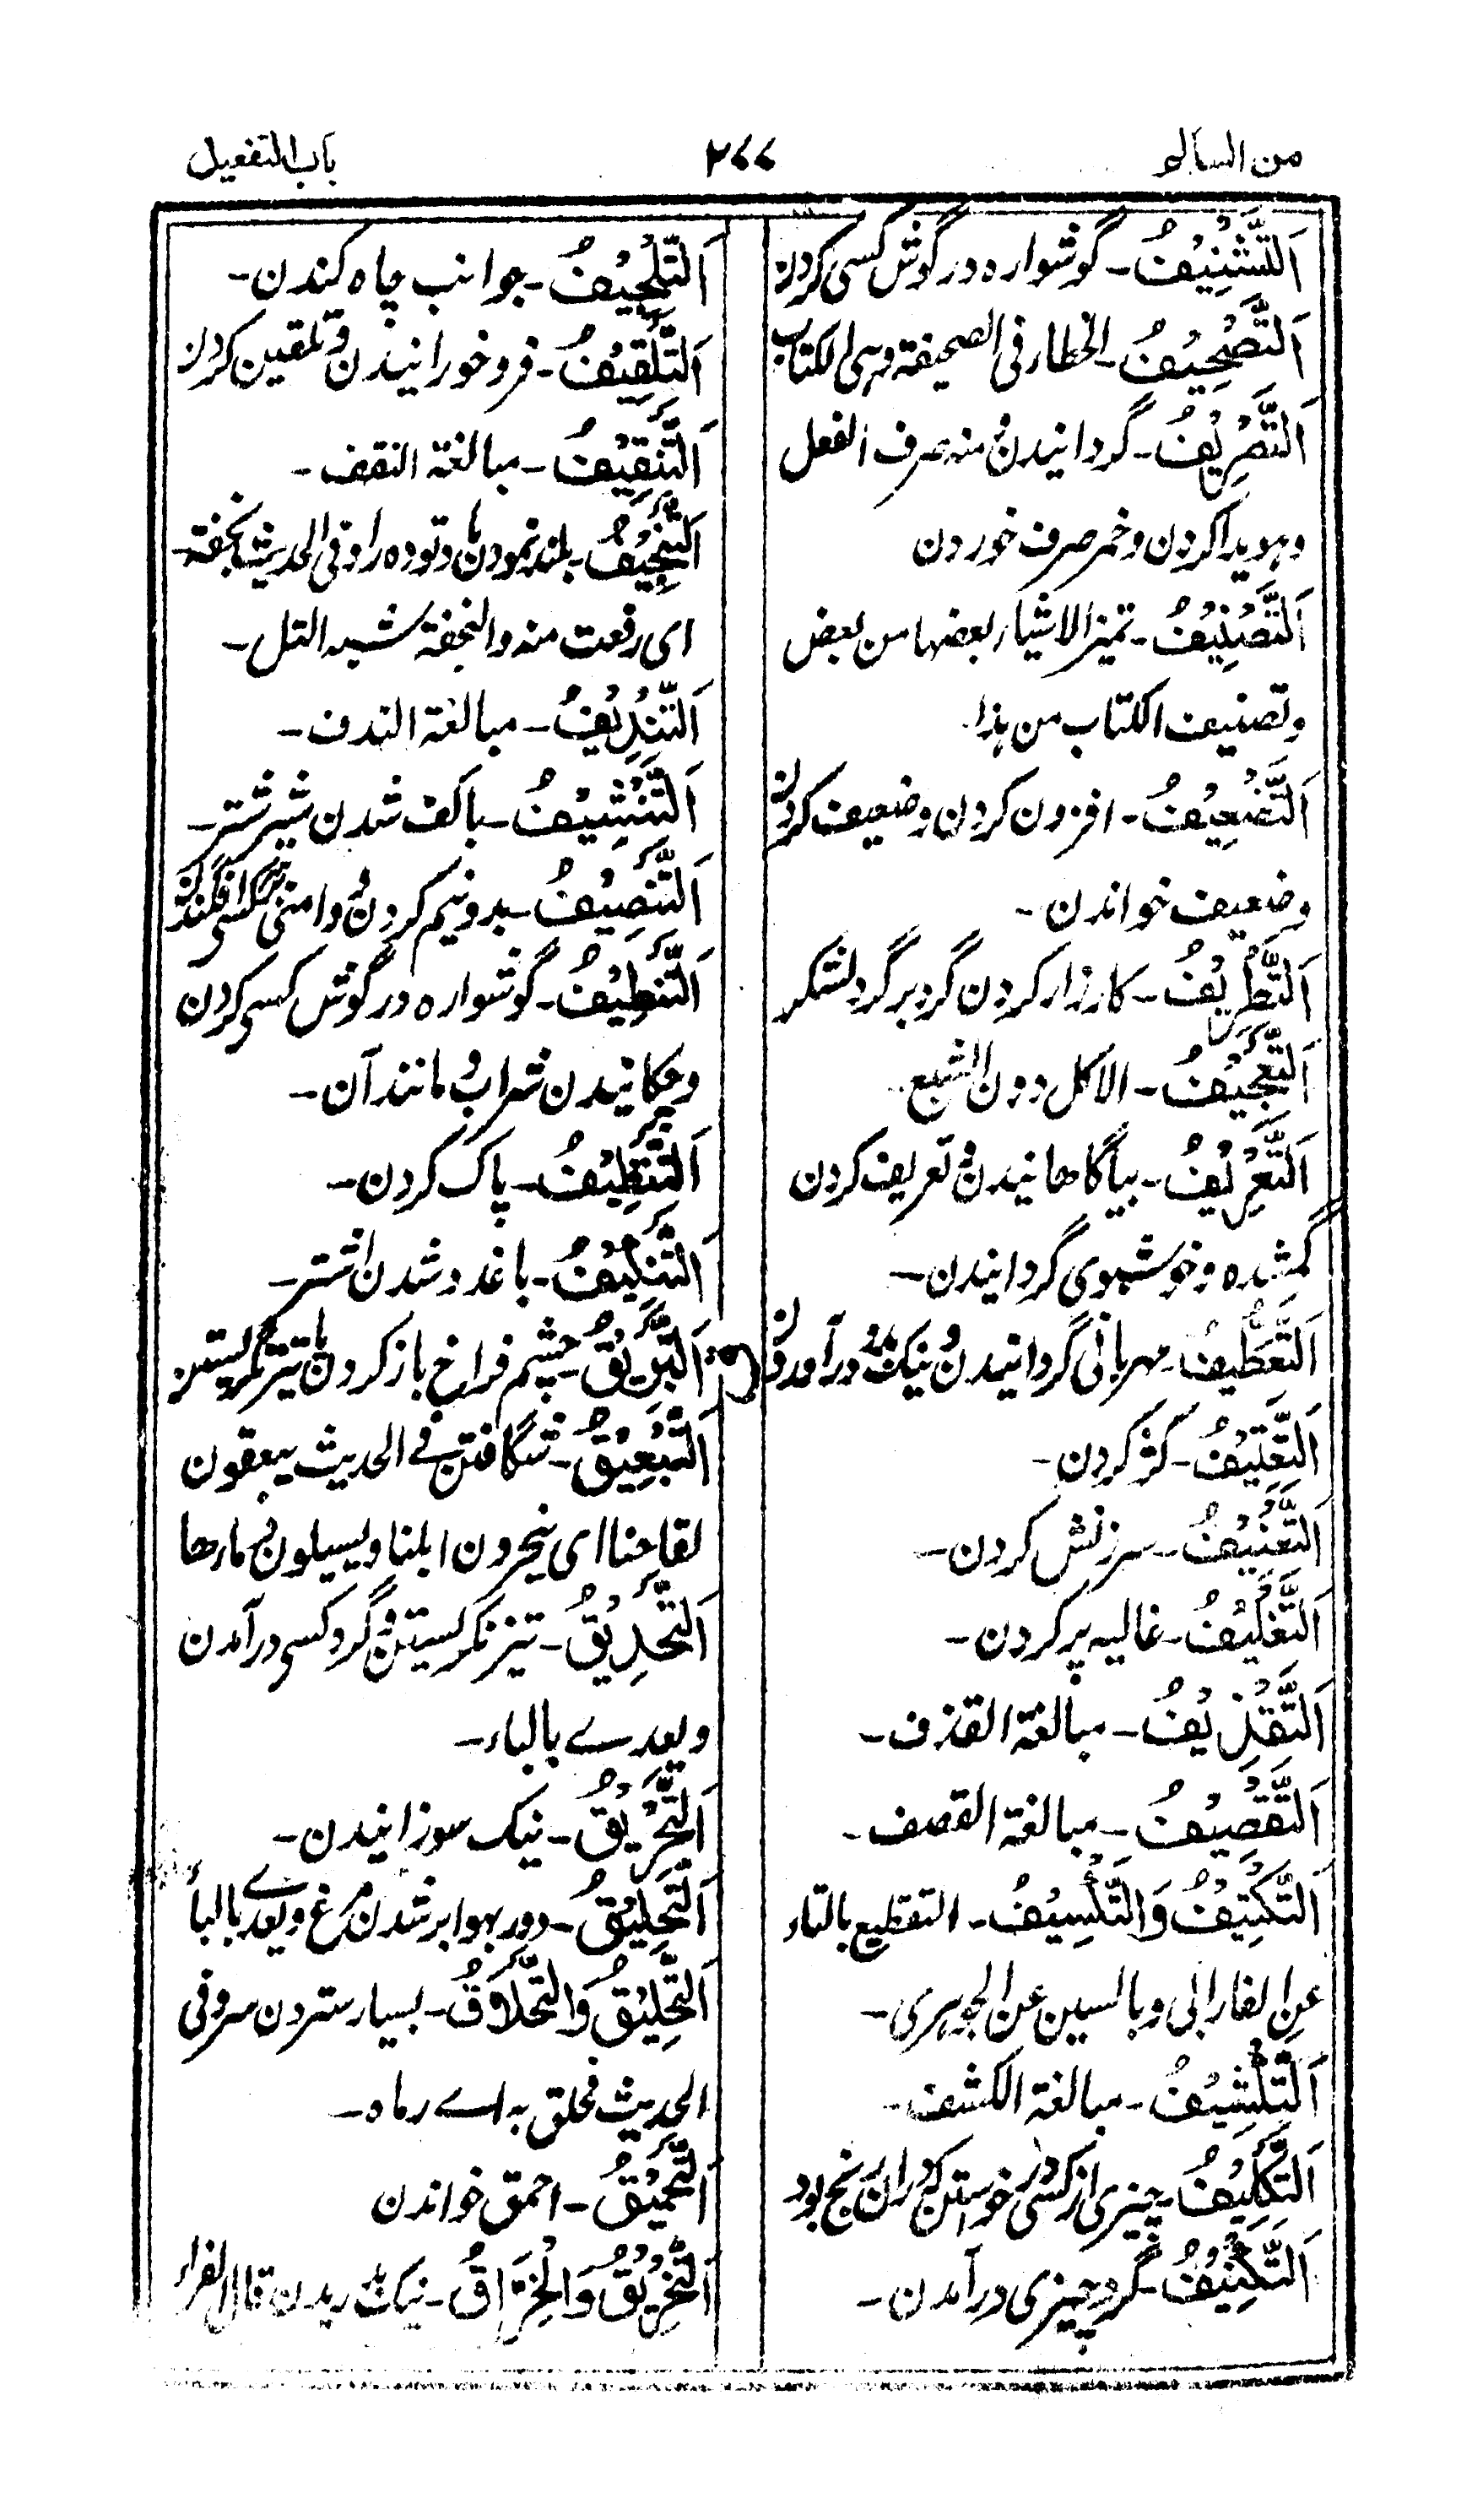 من السالم
٢٧٧
باب التفعيل
اَلتَّشْنِيْفُ - گوشواره در گوش کسی کردن
اَلتَّصْحِيْفُ - الخطاء فی الصحیفة وهی الکتاب
اَلتَّصْرِيْفُ - گردانیدن و منه صرف الفعل
و هویدا کردن و خمر صرف خوردن
اَلتَّصْنِيْفُ - تمیز الاشیاء بعضها من بعض
و تصنیف الکتاب من هذا
اَلتَّضْعِيْفُ - افزون کردن و ضعیف کردن
و ضعیف خواندن -
اَلتَّطْرِيْفُ - کارزار کردن گرد بر گرد لشکر
اَلتَّعْجِيْفُ - الاکل دون الشبع
اَلتَّعْرِيْفُ - بیاگاهانیدن و تعریف کردن
گمشده و خوشبوی گردانیدن -
اَلتَّعْطِيْفُ - مهربانی گردانیدن و نیک درآوردن
اَلتَّعْتِيْفُ - کژ کردن -
اَلتَّعْنِيْفُ - سرزنش کردن -
اَلتَّغْلِيْفُ - غالیه پر کردن -
اَلتَّقْذِيْفُ - مبالغة القذف -
اَلتَّقْصِيْفُ - مبالغة القصف -
اَلتَّكْتِيْفُ وَالتَّكْسِيْفُ - التقطیع بالتاء
عن الفارابی و بالسین عن الجوهری -
اَلتَّكْشِيْفُ - مبالغة الکشف -
اَلتَّكْلِيْفُ - چیزی از کسی در خواستن که در آن رنج بود
اَلتَّكْنِيْفُ - گرد چیزی درآمدن -
اَلتَّلْجِيْفُ - جوانب چاه کندن -
اَلتَّلْقِيْفُ - فرو خورانیدن و تلقین کردن
اَلتَّنْقِيْفُ - مبالغة النقف -
اَلتَّنْجِيْفُ - بلند نمودن باد توده را و فی الحدیث نجفته
ای رفعت منه والنجفة شبه التل -
اَلتَّنْدِيْفُ - مبالغة الندف -
اَلتَّنْشِيْفُ - با کف شدن شیر شتر -
اَلتَّنْصِيْفُ - بدو نیم کردن و دامنی بر کسی افگندن
اَلتَّنْطِيْفُ - گوشواره در گوش کسی کردن
و چکانیدن شراب و مانند آن -
اَلتَّنْظِيْفُ - پاک کردن -
اَلتَّنْكِيْفُ - با غدد شدن اشتر -
ق : اَلتَّبْرِيْقُ - چشم فراخ باز کردن با تیز نگریستن
اَلتَّبْعِيْقُ - شگافتن فی الحدیث یبعقون
لقاحنا ای ینحرون ابلنا و یسیلون دماءها
اَلتَّحْدِيْقُ - تیز نگریستن و گرد کسی درآمدن
و یعدی بالباء -
اَلتَّحْرِيْقُ - نیک سوزانیدن -
اَلتَّحْلِيْقُ - دور بهوا بر شدن مرغ و یعدی بالباء
اَلتَّحْلِيْقُ وَالتَّحْلَاقُ - بسیار ستردن سر و فی
الحدیث فحلق به ای رماه -
اَلتَّحْمِيْقُ - احمق خواندن
اَلتَّخْرِيْقُ وَالْخِرَّاقُ - نیک دریدن قال الفراء